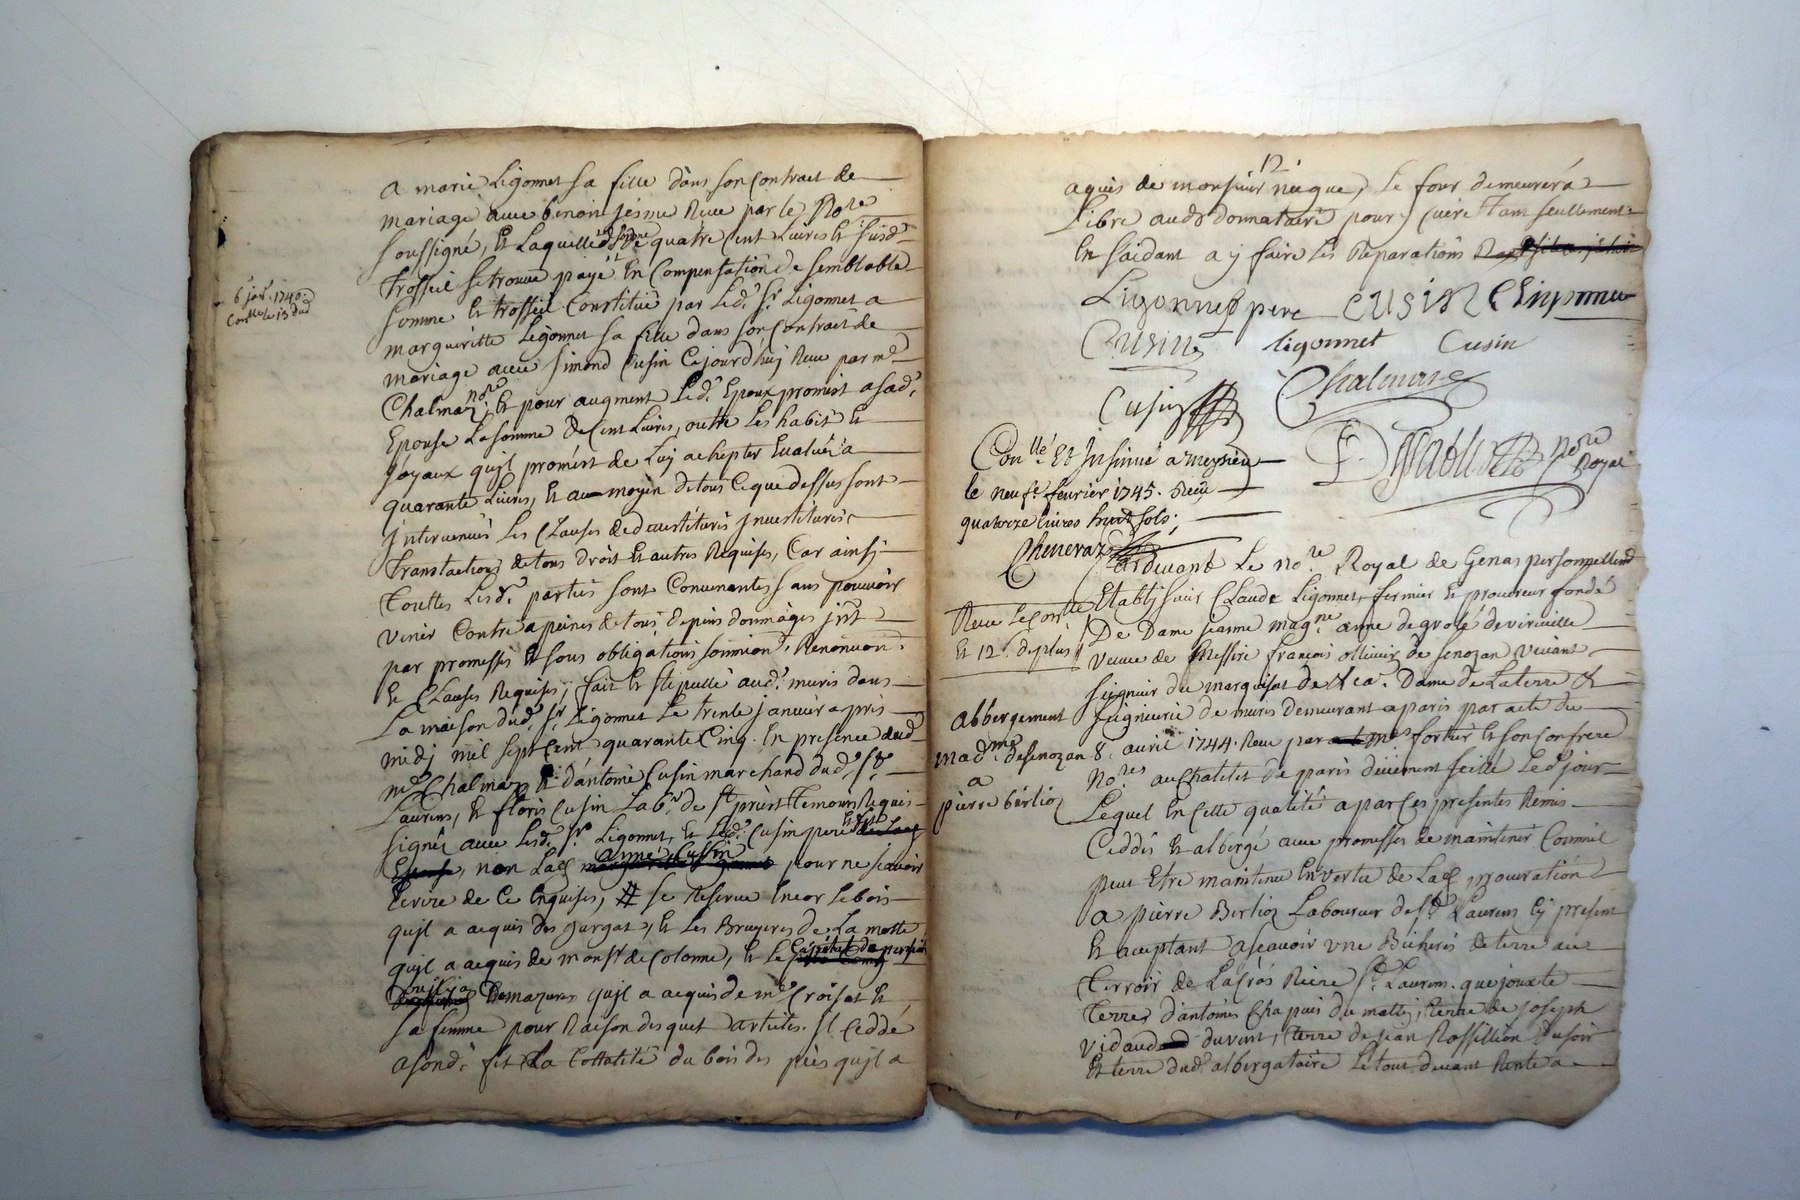 a marie Ligonnet sa fille dans son contrat de
mariage avec benoit jesme Reçu par le No.re
soussigné, et Laquelle somme de quatre cent Livres et susd.
Trosseil se trouve payé En Compensation de semblable
somme et trosseil Constitué par Led.t S.r Ligonnet a
margueritte Ligonnet sa fille dans son Contrat de
mariage avec simond Cusin Cejourd'huy Reçu par m.e
Chalmaz no.re et pour augment Led.t Epoux promest a sad.
Epouse La somme de Cent Livres, outre Les habits et
joyaux qu'jl promest de Luy achepter Evalués a
quarante Livres, et au moyen de tous Ce que dessus sont
jntervenues Les Clauses de devestitures jnvestitures
translations de tous droit et autres Requises, Car ainsi
Touttes Lesd. parties sont Convenantes sans pouvoir
venir Contre a peines de tous depens dommages jnt
par promesses et sous obligations soumion. Renoncion.
et Clauses Requises, fait et stipullé aud. muris dans
La maison dud. S.r Ligonnet Le trente janvier apres
midj mil sept cent quarante Cinq. En presence dud.
m.e Chalmaz et d'antoine Cusin marchand dud. S.t
Laurens, et floris Cusin Lab.r de S.t priest Temoins Requis
signés avec Lesd. S.r Ligonnet, et Led. Cusin pere
non Lad. anne Cusin pour ne sçavoir
Ecrire de Ce Enquises, # se Reserve Encor Le bois
qu'jl a acquis des gargat, et Les Bruyeres de La motte
qu'jl a acquis de mons.r de Colonne, et Le
qu'jl a acquis de m.e Croisat et
sa femme pour Raison desquels articles. jl Cedde
a sond. fils La Tottalité du bois des piés qu'jl a
6 jan. 1746
Con.lle le 13 dud
12
aquis de monsieur néeque, Le four demeurera
Libre aud. donnataire pour y Cuire Tant seullement
En s'aidant a y faire Les Reparations
Ligonnet pere CUSIN
Cusin ligonnet Cusin
Cusin Chalmaz
no.re Royal
Con.llé Et Jnsinué a meyzieu
le neuf.e fevrier 1745. Reçu
quatorze livres huit sols;
Cheneraz
Pardevant Le no.re Royal de Genas personnellem.t
Etablj sieur Claude Ligonnet fermier et procureur fondé
De Dame jeanne mag.ne anne de grolé de viriville
veuve de Messire françois ollivier de senozan vivant
seigneur du marquisat de Dame de La terre et
seigneurie de muris demeurant a paris par acte du
8. avril 1744. Reçu par m.e fortier et son Confrere
No.res au Chatelet de paris düement scellé Led. jour
Lequel En Cette qualité a par Ces presentes Remis
Ceddé et albergé avec promesses de maintenir Comme
peut Etre maintenue En vertu de Lad. procuration
a pierre Berlioz Laboureur de S.t Laurens Cy present
et aceptant asçavoir une Bicherée de terre au
Terroir de La Cros Riere S.t Laurens. que jouxte
Terre d'antoine Chapuis du matin, terre de joseph
vidaud du vent, terre de jean Rossillion du soir
et terre dud. albergataire Le tout devant Rente a
Reçu Le con.lle
et 12 s. de plus
Abbergement
Mad.me de senozan
a
pierre berlioz